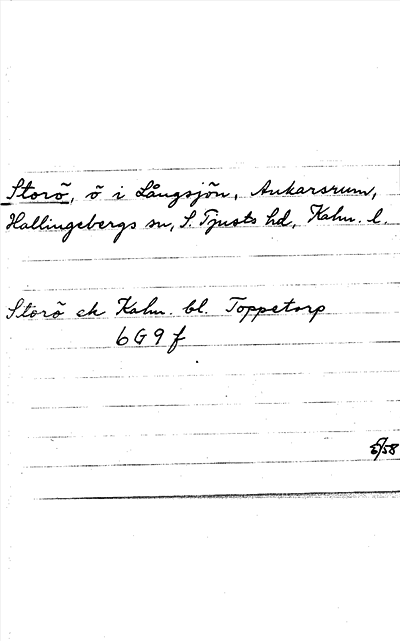 Storö, ö i Långsjön, Ankarsrum,
Hallingebergs sn, S. Tjusts hd, Kalm. l.
Storö ek Kalm. bl. Toppetorp
6G9f
5/58